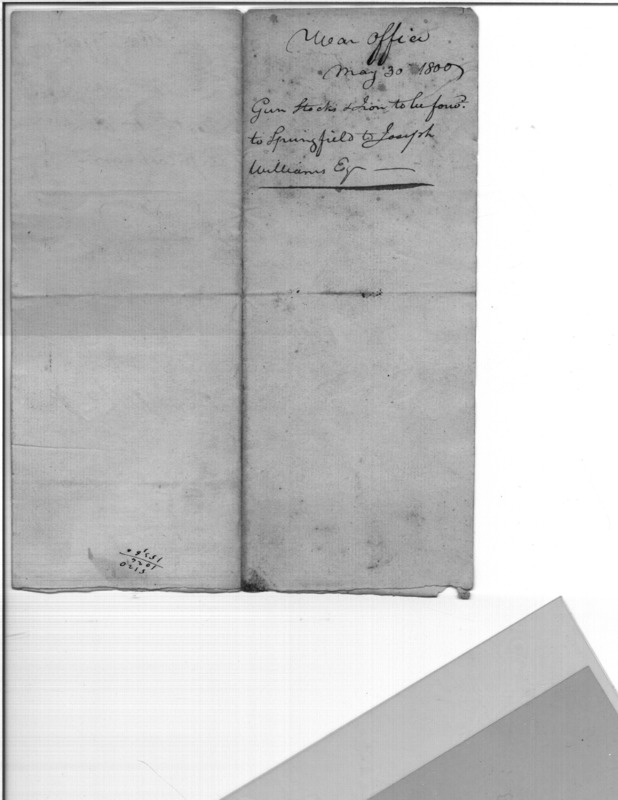 War Office
May 30 1800
Gun Stocks & Iron to be forw.
to Springfield to Joseph
Williams Esq